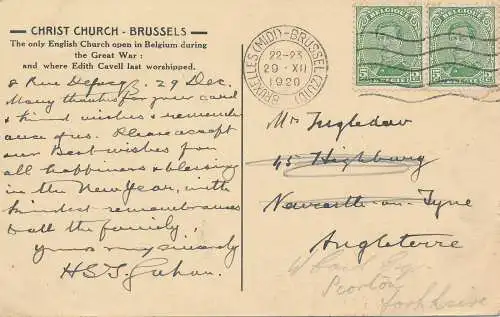 CHRIST CHURCH - BRUSSELS
The only English Church open in Belgium during
the Great War :
and where Edith Cavell last worshipped.
8 Rue 29 Dec.
Many thanks for your card
& kind wishes & remember
ance of us. Please accept
our Best wishes for
all happiness & blessing
in the New Year, with
kindest remembrances
to all the family,
Yours very sincerely
H.S.T. Gahan.
BRUXELLES (MIDI) - BRUSSEL (ZUID)
22-23
29 - XII
1920
BELGIQUE
5 5
BELGIE
BELGIQUE
5 5
BELGIE
Mr Ingledow
45 Highbury
Newcastle-on-Tyne
Angleterre
Scorton
Yorkshire